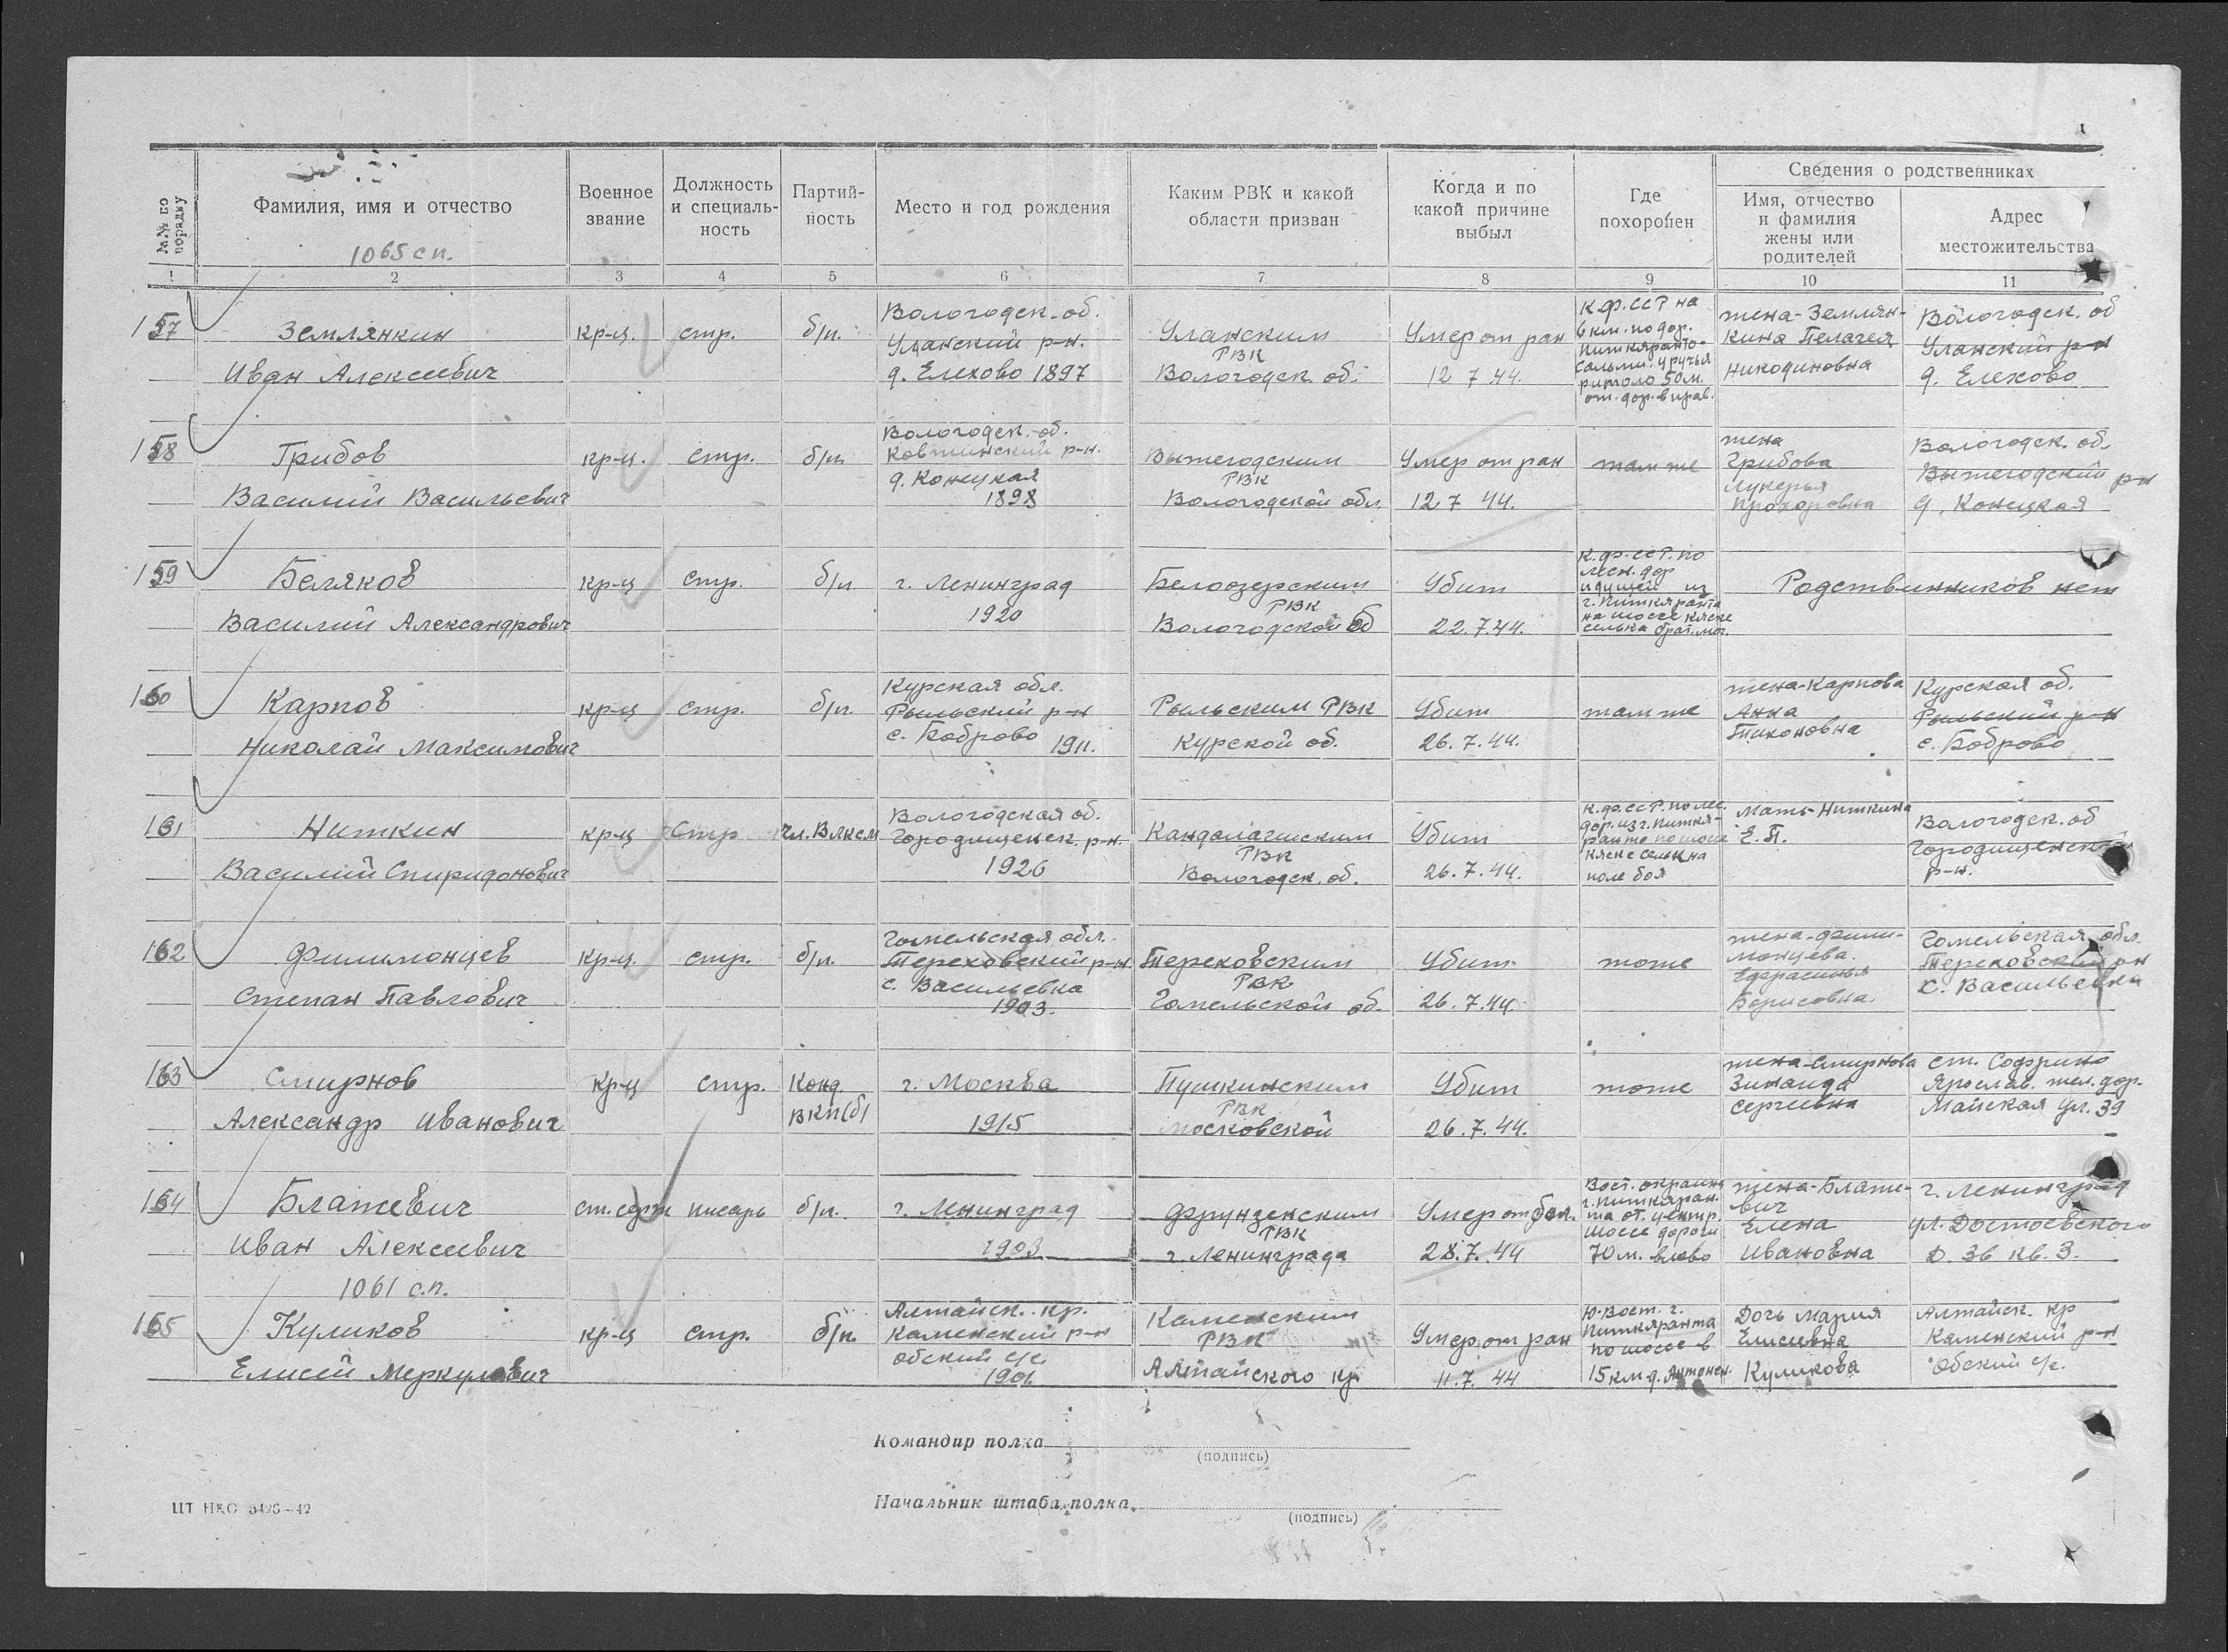 №№ по порядку
Фамилия, имя и отчество
Военное звание
Должность и специаль-ность
Партий-ность
Место и год рождения
Каким РВК и какой области призван
Когда и по какой причине выбыл
Где похоронен
Сведения о родственниках
Имя, отчество и фамилия жены или родителей
Адрес местожительства
1065 сп.
1 2 3 4 5 6 7 8 9 10 11
157
Землянкин
Иван Алексеевич
кр-ц.
стр.
б/п.
Вологодск. об.
Уланский р-н.
д. Елехово 1897
Уланским
РВК
Вологодск. об.
Умер от ран
12 7 44.
К.Ф.ССР на
6 км. по дор.
Питкяранто-
Сальми у ручья
50 м.
от. дор. вправ.
жена-Землян-
кина Пелагея
Никодиновна
Вологодск. об
Уланский р-н
д. Елехово
158
Грибов
Василий Васильевич
кр-ц.
стр.
б/п.
Вологодск. об.
Ковжинский р-н.
д. Конецкая
1898
Вытегодским
РВК
Вологодской обл.
Умер от ран
12 7 44.
там же
жена
Грибова
Лукерья
Прохоровна
Вологодск. об.
Вытегодский р-н
д. Конецкая
159
Беляков
Василий Александрович
кр-ц
стр.
б/п
г. Ленинград
1920
Белоозерским
РВК
Вологодской об
Убит
22.7.44.
К.ф.ССР. по
лесн. дор
идущей из
г. Питкяранта
на шоссе Кяске
селька брат. мог.
Родственников нет
160
Карпов
Николай Максимович
кр-ц
стр.
б/п.
Курская обл.
Рыльский р-н
с. Боброво 1911.
Рыльским РВК
Курской об.
Убит
26.7.44.
там же
жена-Карпова
Анна
Тихоновна
Курская об.
Рыльский р-н
с. Боброво
161
Ниткин
Василий Спиридонович
кр-ц
стр
чл. ВЛКСМ
Вологодская об.
Городищенск. р-н.
1926
Кандалагшским
РВК
Вологодск. об.
Убит
26.7.44.
К.ф.ССР. по лес.
дор. из г. Питкя-
ранто по шоссе
Кяске селькна
поле боя
Мать-Ниткина
Е.П.
Вологодск. об
Городищенский
р-н.
162
Филимонцев
Степан Павлович
кр-ц
стр.
б/п.
Гомельская обл.
Тереховский р-н
с. Васильевка
1903.
Тереховским
РВК
Гомельской об.
Убит
26.7.44.
тоже
жена-Фили-
монцева.
Ефрасинья
Борисовна.
Гомельская обл.
Тереховский рн
с. Васильевка
163
Смирнов
Александр Иванович
кр-ц
стр.
Конд.
ВКП(б)
г. Москва
1915
Пушкинским
РВК
Московской
Убит
26.7.44.
тоже
жена-Смирнова
Зинаида
Сергеевна
ст. Софрино
Ярослав. жел. дор.
Майская ул. 39
164
Блажевич
Иван Алексеевич
ст. серж
писарь
б/п.
г. Ленинград
1903
Фрунзенским
РВК
г. Ленинграда
Умер от бол.
28.7.44
Вост. окраина
г. Питкяран.
та от. центр.
шоссе дороги
70 м. влево
жена-Блаже-
вич
Елена
Ивановна
г. Ленинград
ул. Достоевского
д. 36 кв. 3.
1061 с.п.
165
Куликов
Елисей Меркулович
кр-ц
стр.
б/п.
Алтайск. кр.
Каменский р-н
Обский с/с.
1901
Каменским
РВК
Алтайского кр
Умер от ран
11.7.44
Ю-вост. г.
Питкяранта
по шоссе в
15 км д.
Дочь Мария
Елисеевна
Куликова
Алтайск. кр
Каменский р-н
Обский с/с.
Командир полка
(подпись)
Начальник штаба полка
(подпись)
ЦТ НКО 5498-42